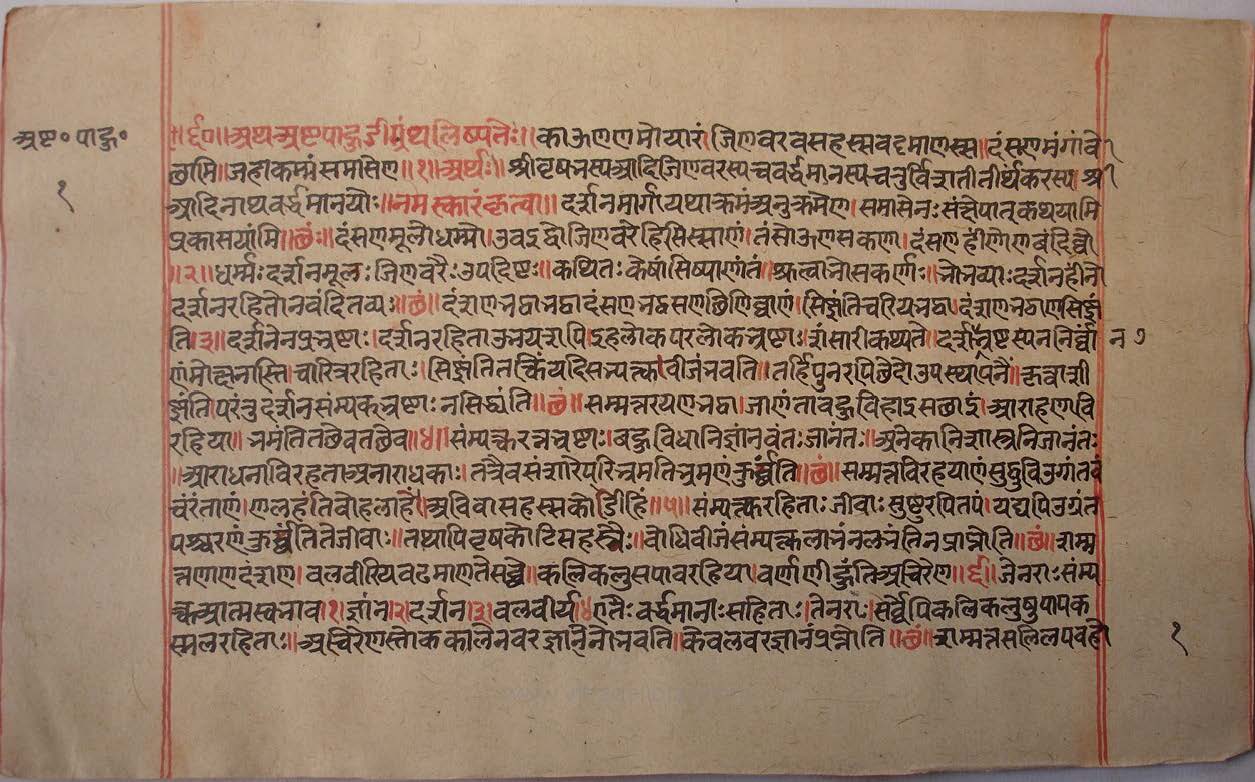 अष्ट॰पाहु॰
१
॥र्द॰॥अथअष्टपाहुडग्रंथलिष्यतेः॥काऊणणमोयारं।जिणवरवसहस्सवद्दमाणस्स॥दंसणमंगांवो
छामि॥जहाकम्मंसमासेण॥१॥अर्थः॥श्रीवृषभस्यआदिजिणवरस्यचवर्द्धमानस्यचतुर्विशतीतीर्थकरस्य।श्री
आदिनाथवर्द्धमानयोः॥नमस्कारंकृत्वा॥दर्शनमार्गायथाक्रमंअनुक्रमेण।समासेनःसंक्षेपात्कथयामि
प्रकासयांमि॥छंः॥दंसणमूलोधम्मो॥उवइट्ठोजिणवरेहिसिस्साणं।तंसोऊणसकाण।दंसणहीणोणवंदिव्वो
॥२॥धर्म्मःदर्शनमूलःजिणवरैःउपदिष्टः॥कथितःकेषांसिष्याणांतं॥श्रुत्वानोसकर्णाः॥भोभव्याःदर्शनहीनो
दर्शनरहितोनवंदितव्यः॥छं॥दंशणभट्ठाभट्ठादंसणभट्ठसणछिणिव्वाणं।सिझंतिचरियभट्ठा।दंशणभठाणसिझं
ति३॥दर्शनेनप्रभ्रष्टाः।दर्शनरहिताउभयशपिइहलोकपरलोकभ्रष्टाः।शंसारीकथ्यते।दर्शनभ्रष्टस्यननिर्व्वा
न७
णंमोक्षनास्ति।चारित्ररहिताः।सिझंतितर्किंयदिसम्यत्क।वीजंभवति॥तर्हिपुनरपिछेदोउपस्थापनैं।कृत्वाशी
झंतिपरंतुदर्शनसंम्यकभ्रष्टाःनसिद्ध्यंति॥छं॥सम्मत्तरयणभट्ठा।जाणंतावहुविहाइसछाइं।आराहणावि
रहिया॥भमंतितछेवतछेव॥४॥संम्यक्करत्नभ्रष्टाः।बहुविधानिज्ञांनवंतःजानंतः॥अनेकानिशास्त्रनिजानंतः
॥आराधनाविरहताअनाराधकाः।तत्रैवसंशारेपरिभ्रमतिभ्रमणंकुर्व्वंति॥छं॥सम्मत्तविरहयाणंसुट्ठुविउगांतवं
चंरंताणं।णलहंतिवोहलाहं॥अविवासहस्सकोडीहिं॥५॥संम्यत्करहिताःजीवाःसुष्टुरपितपं।यद्यपिउग्रंत
पश्चरणंकुर्व्वंतितेजीवाः॥तथापिवृषकोटिसहस्त्रैः॥बोधिवीजंसंम्यत्कलाभंनलभंतिनप्राप्नोति॥छं॥शम्म
त्तणाणदंशण।वलवीरियवढमाणतेसव्वे॥कलिकलुसपावरहिया।वर्णाणीहुंतिअचिरेण॥६॥जेनराःसंम्य
क्कआत्मस्वभाव।१।ज्ञांन।२।दर्शन।३।वलवीर्य।४।णतैःवर्द्धमानाःसहिताः।तेनराःसर्व्वेपिकलिकलुषुपापक
स्मलरहिताः॥अचिरेणस्तोककालेनवरज्ञानेनोभवति।केवलवरज्ञानंप्रप्नोति॥छं॥शम्मत्तसलिलपवहो
१